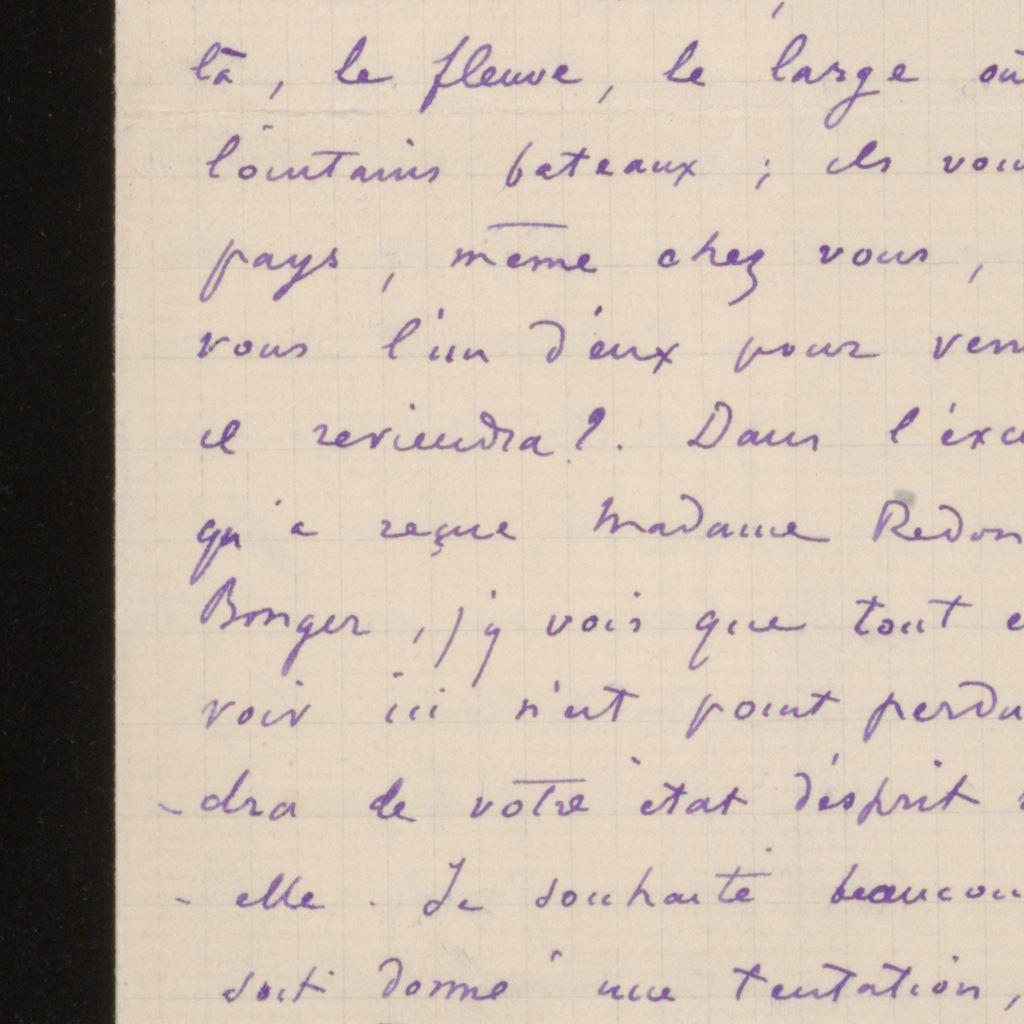 là, le fleuve, le large où
lointains bateaux ; ils vou
pays, même chez vous,
vous l'un d'eux pour ven
il reviendra ?. Dans l'exc
qu'a reçue Madame Redon
Bonger, j'y vois que tout c
voir ici n'est point perdu
-dra de votre état d'esprit
- elle. Je souhaite beaucou
soit donné une tentation,